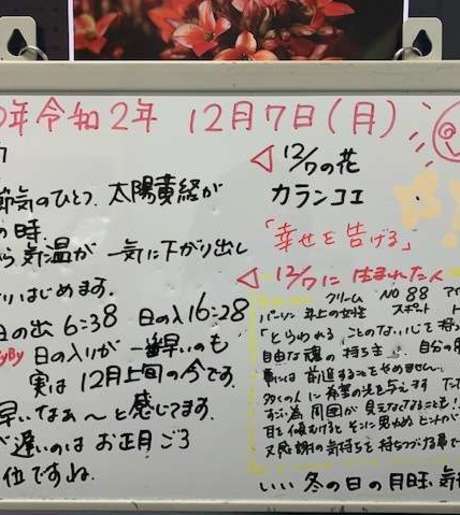 年令和2年 12月7日(月)
節気のひとつ、太陽黄経が
の時。
気温が 一気に下がり出し
りはじめます。
日の出 6:38 日の入 16:28
日の入りが 一番早いのも
実は 12月上旬の今です。
早いなぁ〜と感じてます。
遅いのは お正月ごろ
位ですね。
12/7の花
カランコエ
「幸せを告げる」
12/7に 生まれた人
クリーム NO 88
パーソン 年上の女性 スポット
「とらわれる ことのない心を持っ
自由な魂の持ち主
事には 前進することをやめません。
多くの人に 希望の光を与えます
すごい為 周囲が 見えなくなることも!
耳を傾けると そこに 思わぬ ヒントが
又感謝の気持ちを 持ちつづける事で
いい 冬の日の月曜